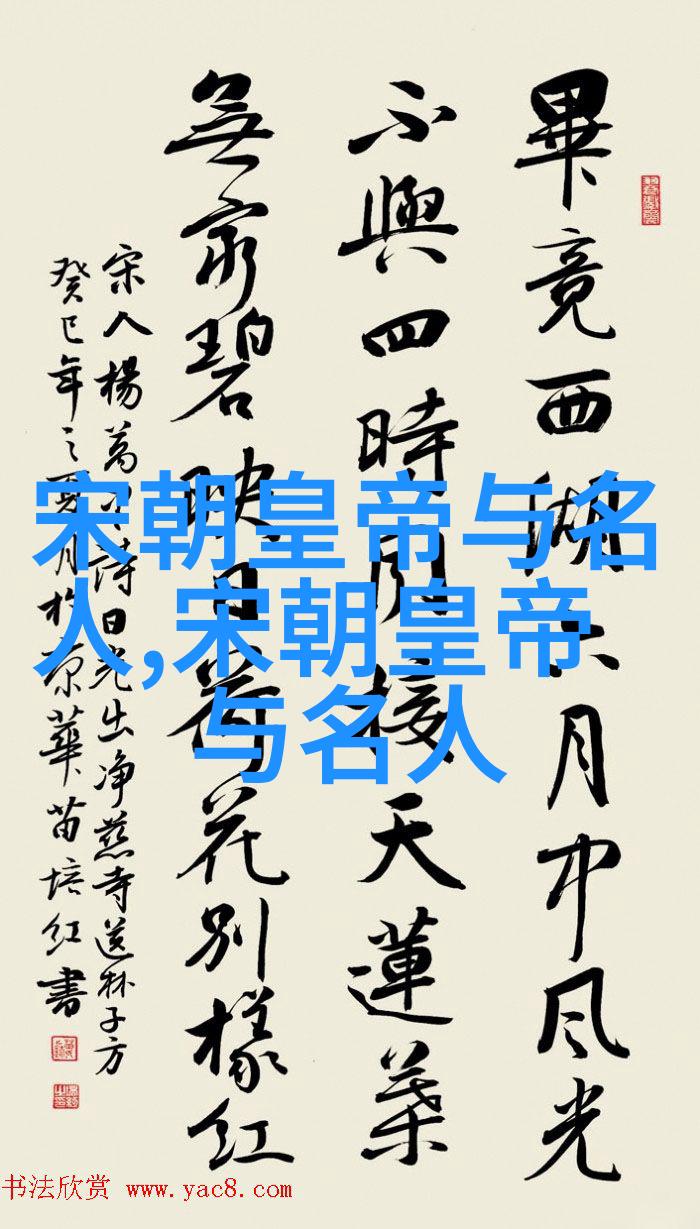 畢竟西湖六月中风光
不與四時同接天蓮葉
無窮碧映日荷花别樣红
宋人楊萬里诗晓出净慈寺送林子方
癸巳年之夏月於京華苗培红書
宋朝皇帝与名
人,宋朝皇帝
与名人
书法欣赏 www.yac8.com